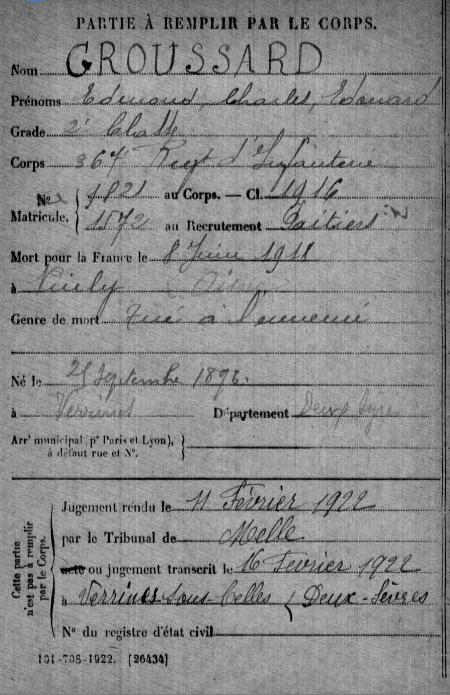 PARTIE À REMPLIR PAR LE CORPS.
Nom GROUSSARD
Prénoms Edmond, Charles, Edouard
Grade 2e Classe
Corps 367 Regt d'Infanterie
Nos Matricule. 9821 au Corps. — Cl. 1916
1572 au Recrutement Poitiers
Mort pour la France le 8 Juin 1918
à
Genre de mort Tué à l'ennemi
Né le Septembre 1896
à Verrines Département Deux Sèvres
Arrt municipal (pr Paris et Lyon),
à défaut rue et N°.
Cette partie
n'est pas à remplir
par le Corps.
Jugement rendu le 11 Février 1922
par le Tribunal de Melle
acte ou jugement transcrit le 16 Février 1922
à Verrines sous Celles (Deux-Sèvres
N° du registre d'état civil
101-708-1922. [26434]